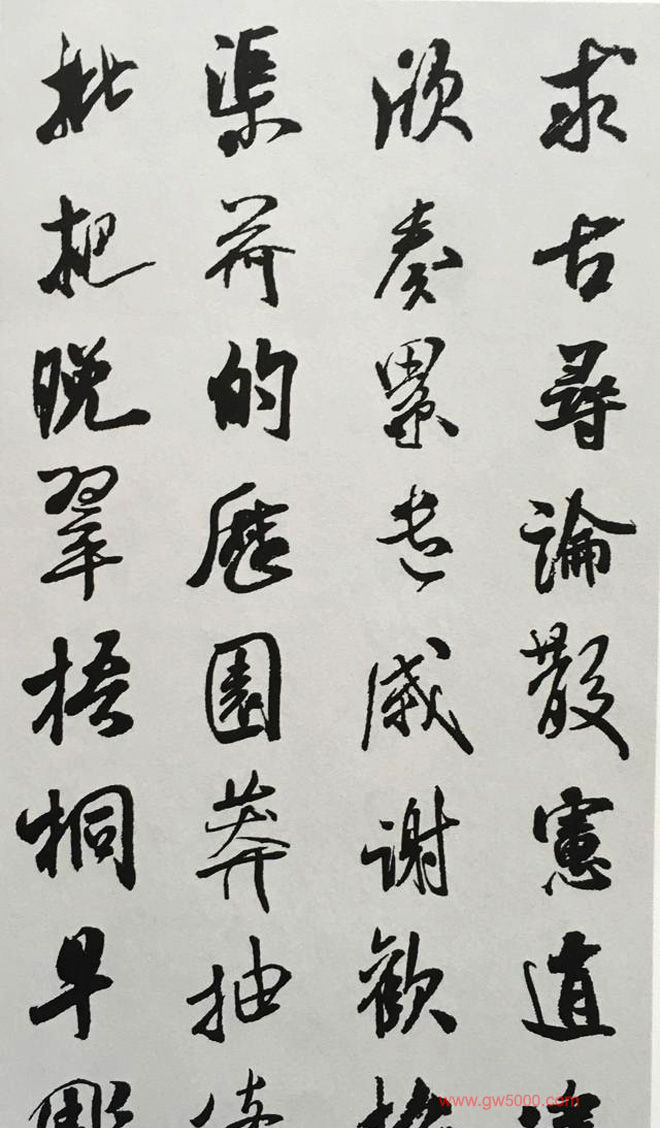 求古尋論散慮逍
欣奏累遣慼謝歡
渠荷的歷園莽抽
枇杷晚翠梧桐早
www.gw5000.com